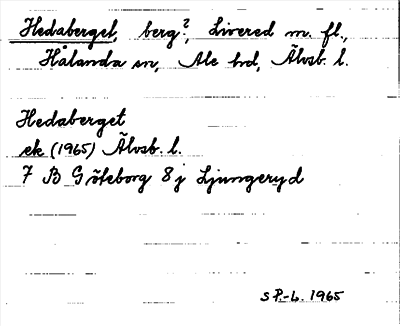 Hedaberget, berg?, Livered m. fl.,
Hålanda sn, Ale hd, Älvsb. l.
Hedaberget
ek (1965) Älvsb. l.
7 B Göteborg 8 j Ljungeryd
S P.-L. 1965